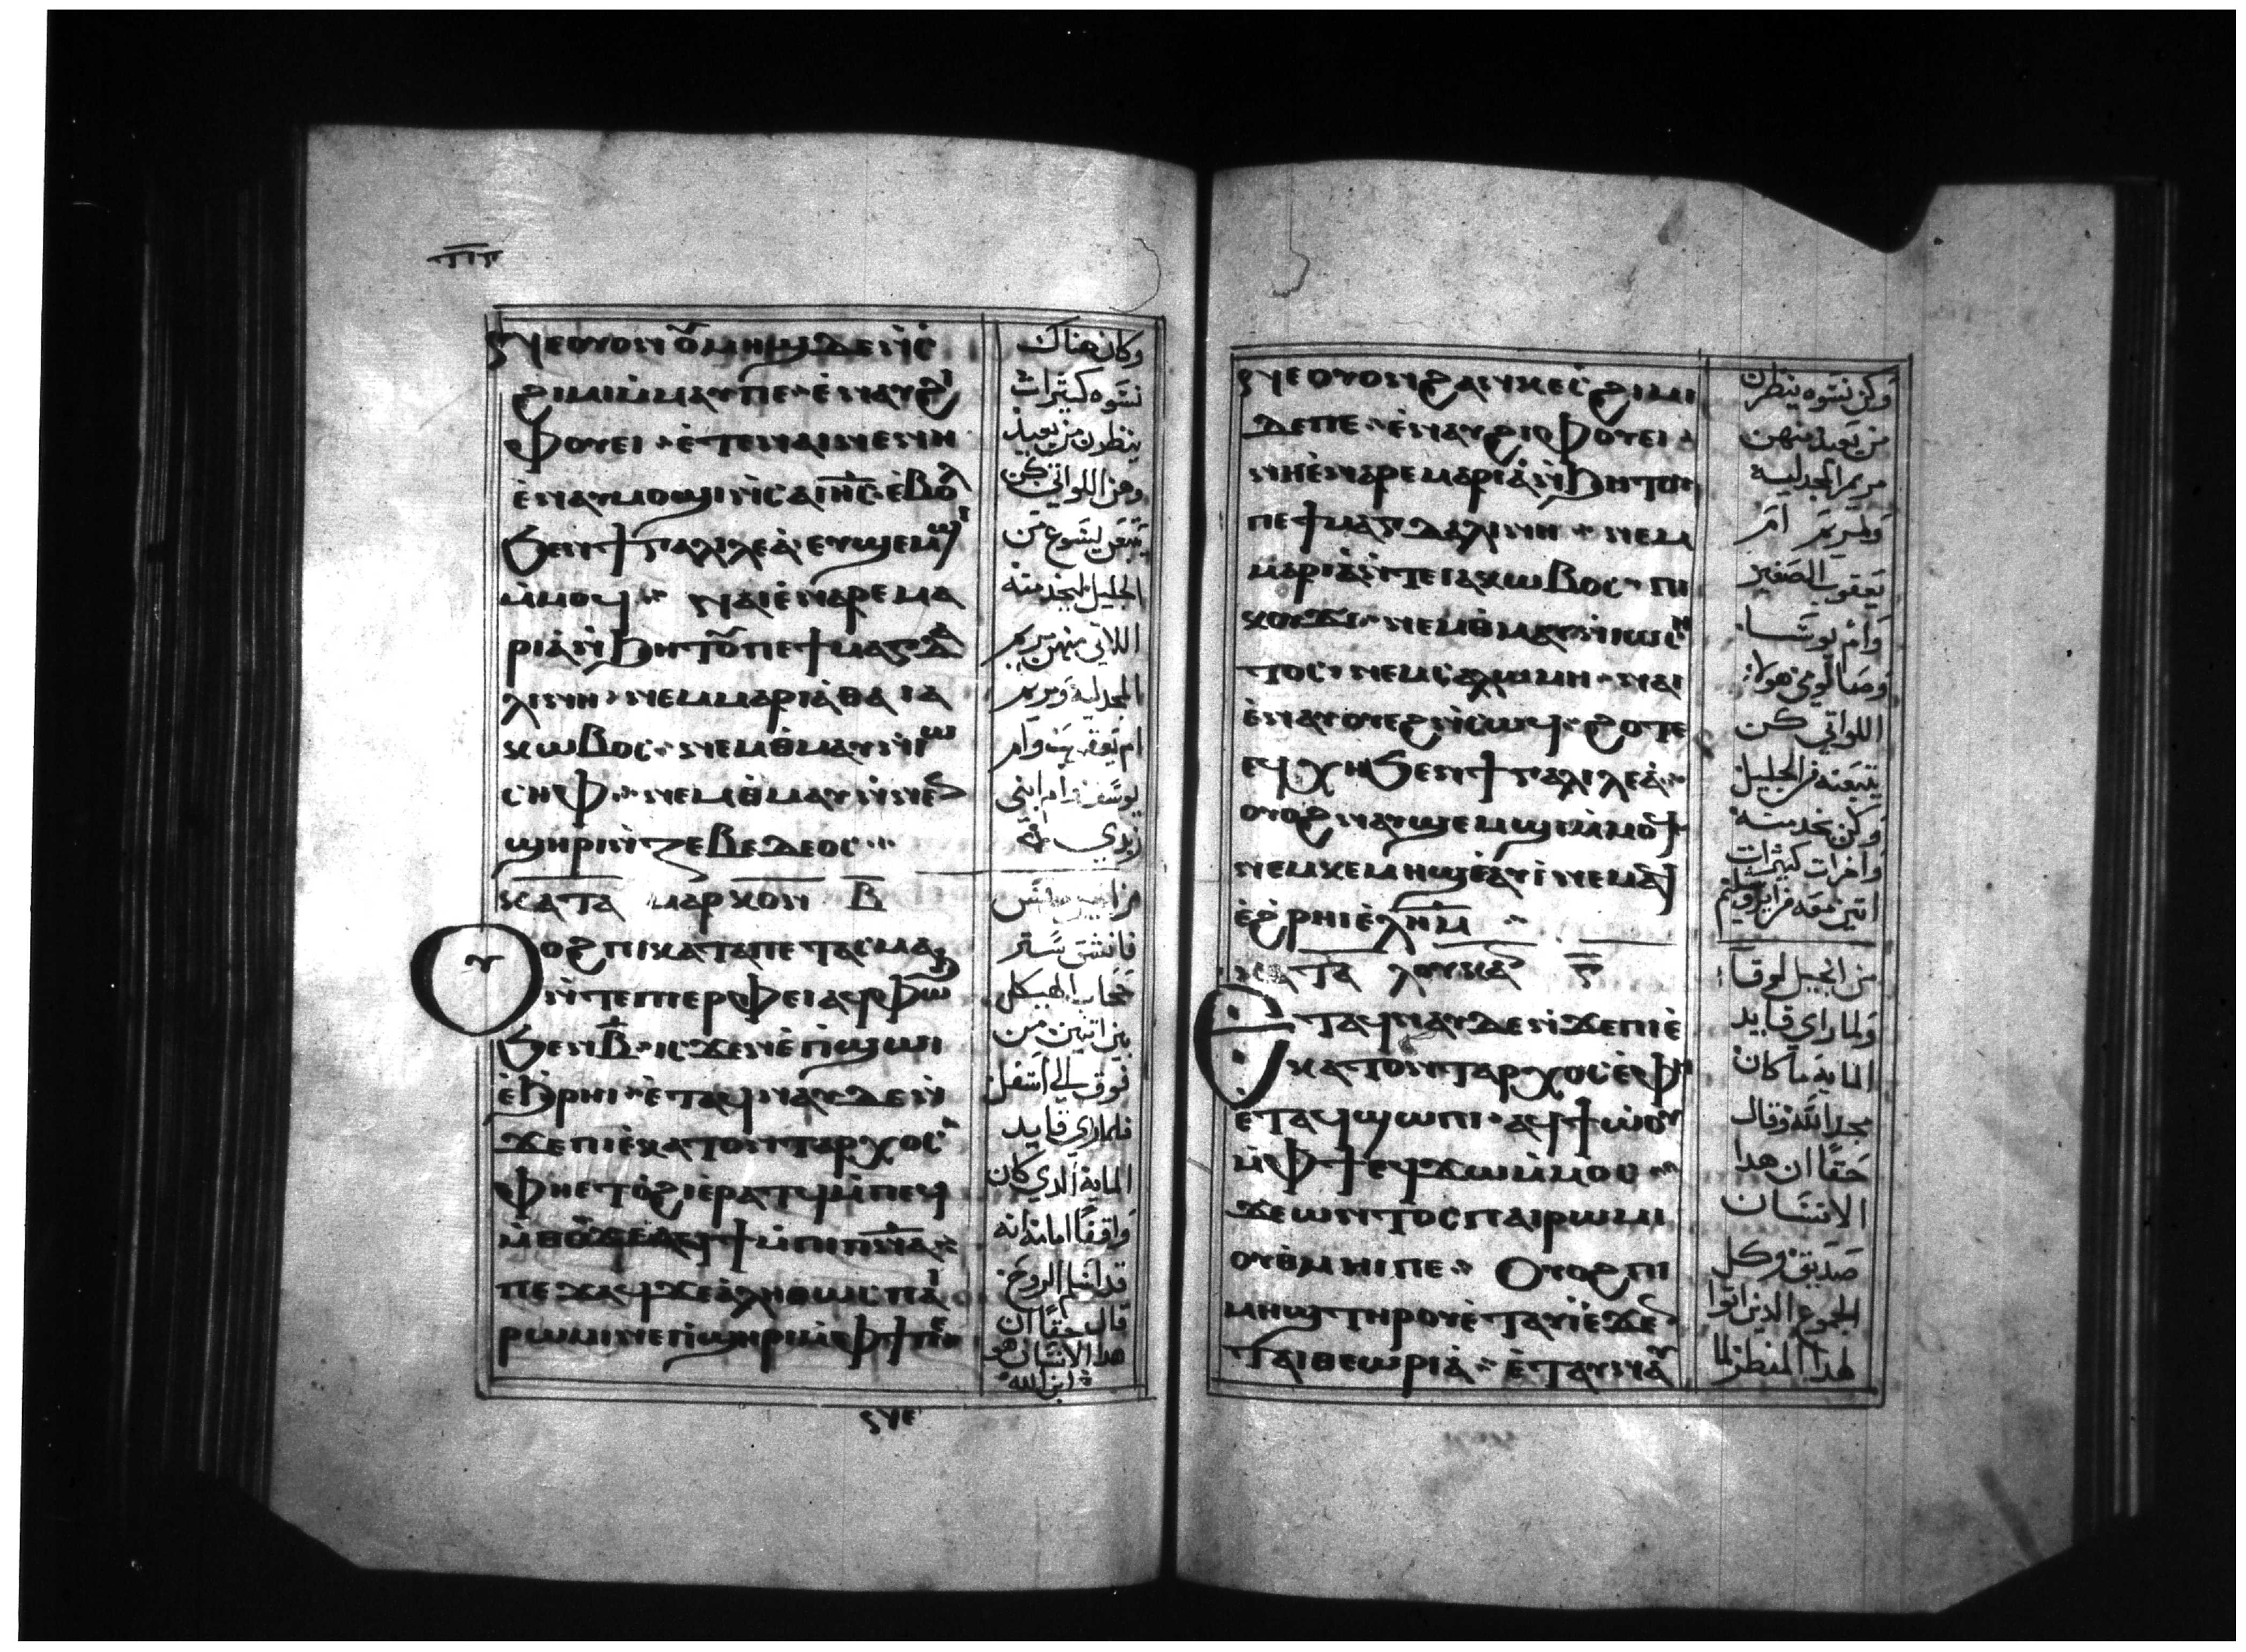 ⲛⲉⲟⲩⲟⲛ ⲟ̄ⲙⲏϣ ⲇⲉ ⲛ̀ⲥ̀
ϩⲓⲙⲓ ⲙ̀ⲙⲁⲩⲡⲉ ⲉ̀ⲛⲁⲩϩⲓ
ⲫⲟⲩⲉⲓ ⲉ̀ⲧⲉⲛⲁⲓⲛⲉⲛⲏ
ⲉ̀ⲛⲁⲩⲙⲟϣⲓ ⲛ̀ⲥⲁ ⲓⲏ̅ⲥ̅ ⲉ̀ⲃⲟⲗ
ϧⲉⲛϯⲅⲁⲗⲓⲗⲉⲁ̀ ⲉⲩϣⲉⲙϣⲓ
ⲙ̀ⲙⲟϥ ⲛⲁⲓ ⲉ̀ⲛⲁⲣⲉ ⲙⲁ
ⲣⲓⲁ̀ ⲛ̀ϧⲏⲧⲟ̄ⲡⲉ ϯⲙⲁⲅⲇⲁ
ⲗⲓⲛⲏ ⲛⲉⲙ ⲙⲁⲣⲓⲁ̀ ⲑⲁ ⲓⲁ
ⲕⲱⲃⲟⲥ ⲛⲉⲙ ⲑ̀ⲙⲁⲩ ⲛ̀ⲓⲱ
ⲥⲏⲫ ⲛⲉⲙ ⲑ̀ⲙⲁⲩ ⲛ̀ⲛⲉⲛ
ϣⲏⲣⲓ ⲛ̀ⲍⲉⲃⲉⲇⲉⲟⲥ
ⲕⲁⲧⲁ ⲙⲁⲣⲕⲟⲛ ⲃ̅
ⲟⲩⲟϩ ⲡⲓⲕⲁⲧⲁⲡⲉⲧⲁⲥⲙⲁ
ⲛ̀ⲧⲉ ⲡⲓⲉⲣⲫⲉⲓ ⲁϥⲫⲱϧ
ϧⲉⲛ ⲃ̅ ⲓⲥϫⲉⲛ ⲉ̀ⲡϣⲱⲓ
ⲉ̀ϧⲣⲏⲓ ⲉ̀ⲧⲁϥⲛⲁⲩ ⲇⲉ ⲛ̀
ϫⲉ ⲡⲓⲉ̀ⲕⲁⲧⲟⲛⲧⲁⲣⲭⲟⲥ
ⲫⲏⲉⲧⲟ̀ϩⲓ ⲉ̀ⲣⲁⲧϥ ⲙ̀ⲡⲉϥ
ⲙ̀ⲑⲟ ϫⲉ ⲁϥϯ ⲙ̀ⲡⲓⲡ̅ⲛ̅ⲁ̅
ⲡⲉϫⲁϥ ϫⲉ ⲁ̀ⲗⲏⲑⲱⲥ ⲡⲁⲓ
ⲣⲱⲙⲓ ⲛⲉ ⲡ̀ϣⲏⲣⲓ ⲙ̀ⲫϯ ⲡⲉ
ⲛⲉ
وكان هناك
نسوه كثيرات
ينظرون من بعيد
وهن اللواتي كن
يتبعن يسوع من
الجليل يخدمنه
اللاتي منهن مريم
المجدلية ومريم
ام يعقوب وام
يوسف وام ابني
زبدي
من انجيل مرقس
فانشق ستر
حجاب الهيكل
من اثنين من
فوق الي اسفل
فلما راي قايد
الماية الذي كان
واقفا امامه انه
قد اسلم الروح
قال حقا ان
هدا الانسان هو
ابن الله
ⲛⲉⲟⲩⲟⲛ ϩⲁⲛⲕⲉⲥ̀ϩⲓⲙⲓ
ⲇⲉⲡⲉ ⲉ̀ⲛⲁⲩϩⲓⲫⲟⲩⲉⲓ
ⲛⲏⲉ̀ⲛⲁⲣⲉ ⲙⲁⲣⲓⲁ̀ ⲛ̀ϧⲏⲧⲟⲩ
ⲡⲉ ϯⲙⲁⲅⲇⲁⲗⲓⲛⲏ ⲛⲉⲙ
ⲙⲁⲣⲓⲁ̀ ⲛ̀ⲧⲉ ⲓⲁⲕⲱⲃⲟⲥ ⲡⲓ
ⲕⲟⲩϫⲓ ⲛⲉⲙ ⲑ̀ⲙⲁⲩ ⲛ̀ⲓⲱⲥⲏ
ⲧⲟⲥ ⲛⲉⲙ ⲥⲁⲗⲱⲙⲏ ⲛⲁⲓ
ⲉ̀ⲛⲁⲩⲟⲩⲉϩ ⲛ̀ⲥⲱϥ ϩⲟⲧⲉ
ⲉϥⲭⲏ ϧⲉⲛ ϯⲅⲁⲗⲓⲗⲉⲁ̀
ⲟⲩⲟϩ ⲛⲁⲩϣⲉⲙϣⲓ ⲙ̀ⲙⲟϥ
ⲛⲉⲙ ⲕⲉⲙⲏϣ ⲉ̀ⲁⲩⲓ̀ ⲛⲉⲙⲁϥ
ⲉ̀ϩ̀ⲣⲏⲓ ⲉ̀ⲓ̅ⲗ̅ⲏ̅ⲙ̅
ⲕⲁⲧⲁ ⲗⲟⲩⲕⲁⲛ ⲅ̅
ⲉⲧⲁϥⲛⲁⲩ ⲇⲉ ⲛ̀ϫⲉ ⲡⲓⲉ̀
ⲕⲁⲧⲟⲛⲧⲁⲣⲭⲟⲥ ⲉ̀ⲫⲏ
ⲉ̀ⲧⲁϥϣⲱⲡⲓ ⲁϥϯⲱ̀ⲟⲩ
ⲙ̀ⲫϯ ⲉϥϫⲱ ⲙ̀ⲙⲟⲥ
ϫⲉ ⲟⲛⲧⲟⲥ ⲡⲁⲓⲣⲱⲙⲓ
ⲟⲩⲑ̀ⲙⲏⲓ ⲡⲉ ⲟⲩⲟϩ ⲡⲓ
ⲙⲏϣ ⲧⲏⲣⲟⲩ ⲉ̀ⲧⲁⲩⲓ̀ ⲉ̀ϫⲉⲛ
ⲧⲁⲓⲑⲉⲱⲣⲓⲁ̀ ⲉ̀ⲧⲁⲩⲛⲁⲩ
وكن نسوه ينظرن
من بعيد منهن
مريم المجدلية
ومريم ام
يعقوب الصغير
وام يوسا
وصالومي هولا
اللواتي كن
يتبعنه في الجليل
وكن يخدمنه
واخرات كثيرات
اتين معه
من انجيل لوقا
ولما راي قايد
الماية ما كان
مجد الله وقال
حقا ان هدا
الانسان
صديق وكل
الجموع الدين اتوا
لهدا المنظر لما